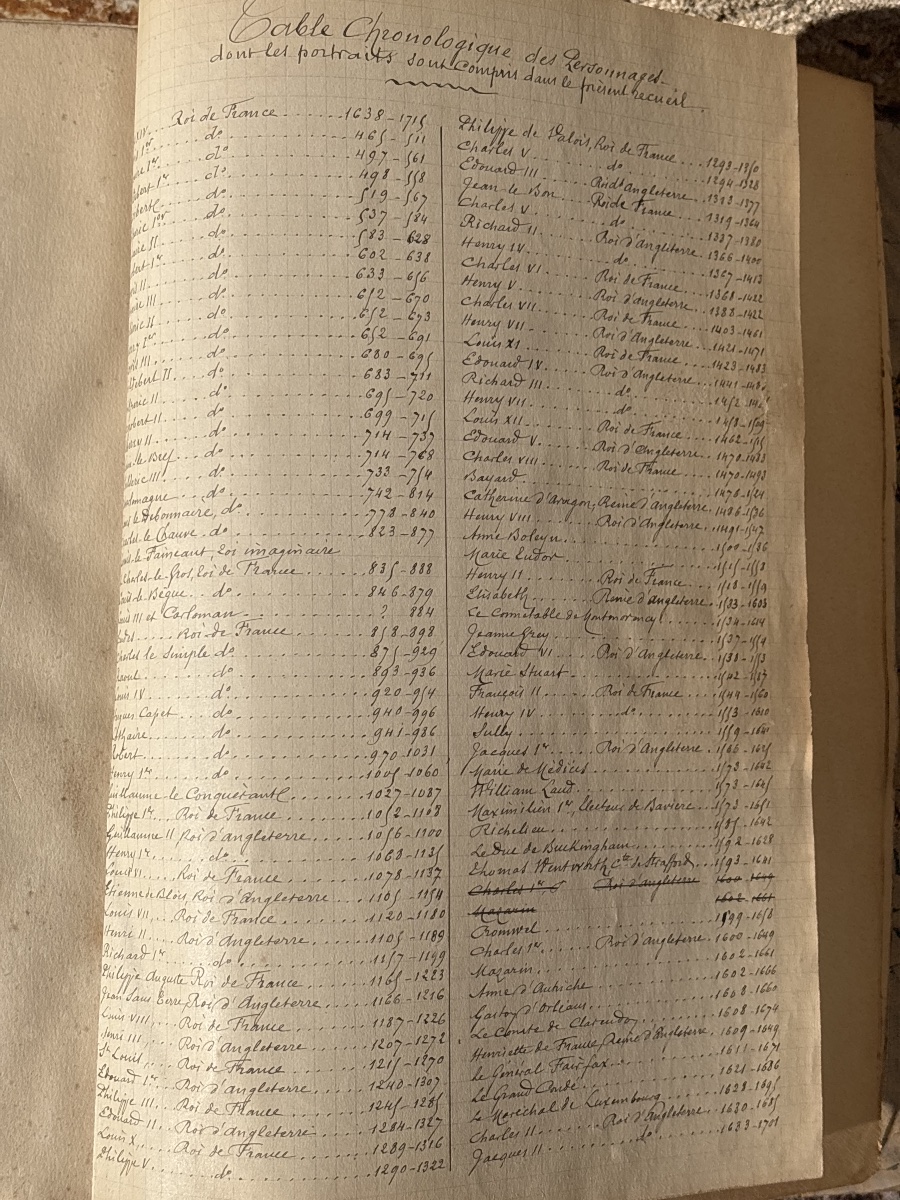 Table Chronologique des Personnages
dont les portraits sont compris dans le présent recueil.
XIV.... Roi de France ........ 1638-1715
1er ... do ........ 465-511
1er ... do ........ 497-561
bert 1er do ........ 498-558
bert do ........ 519-567
1er do ........ 537-584
II do ........ 583-628
bert 1er do ........ 602-638
II do ........ 633-656
III do ........ 652-670
II do ........ 652-673
1er do ........ 652-691
III do ........ 680-695
debert II. do ........ 683-711
II do ........ 695-720
bert II do ........ 699-715
II do ........ 714-737
le Bref do ........ 714-768
III do ........ 733-754
magne do ........ 742-814
le Débonnaire, do ........ 778-840
le Chauve. do ........ 823-877
le Faineant, Roi imaginaire
Charles le Gros, Roi de France ........ 835-888
le Bègue. do ........ 846-879
III et Carloman ........ ? 884
Roi de France ........ 858-898
Charles le Simple do ........ 875-929
do ........ 893-936
IV do ........ 920-954
Capet do ........ 940-996
thaire do ........ 941-986
obert do ........ 970-1031
Henry 1er do ........ 1005-1060
Guillaume le Conquérant ........ 1027-1087
Philippe 1er Roi de France ........ 1052-1108
Guillaume II Roi d'angleterre ........ 1056-1100
Henry 1er do ........ 1068-1135
Louis VI Roi de France ........ 1078-1137
Etienne de Blois, Roi d'Angleterre ........ 1105-1154
Louis VII, Roi de France ........ 1120-1180
Henri II Roi d'Angleterre ........ 1105-1189
Richard 1er do ........ 1157-1199
Philippe Auguste Roi de France ........ 1165-1223
Jean Sans Terre, Roi d'Angleterre ........ 1166-1216
Louis VIII, Roi de France ........ 1187-1226
Henri III, Roi d'Angleterre ........ 1207-1272
St Louis, Roi de France ........ 1215-1270
Edouard 1er Roi d'angleterre ........ 1240-1307
Philippe III. Roi de France ........ 1245-1285
Edouard II. Roi d'Angleterre ........ 1284-1327
Louis X. Roi de France ........ 1289-1316
Philippe V do ........ 1290-1322
Philippe de Valois, Roi de France ... 1293-1350
Charles V do 1294-1328
Edouard III Roi d'angleterre ... 1313-1377
Jean le Bon Roi de France ... 1319-1364
Charles V do 1337-1380
Richard II Roi d'Angleterre ... 1366-1400
Henry IV do 1367-1413
Charles VI Roi de France ... 1368-1422
Henry V Roi d'angleterre ... 1388-1422
Charles VII Roi de France ... 1403-1461
Henry VII Roi d'Angleterre ... 1421-1471
Louis XI Roi de France ... 1423-1483
Edouard IV Roi d'Angleterre ... 1441-
Richard III do
Henry VII do
Louis XII Roi de France ... 1462-
Edouard V Roi d'Angleterre ... 1470-1483
Charles VIII Roi de France ... 1470-1493
Bayard 1476-1524
Catherine d'Aragon, Reine d'angleterre 1486-1536
Henry VIII Roi d'Angleterre ... 1491-1547
Anne Boleyn 1500-1536
Marie Tudor 1515-1558
Henry II Roi de France ... 1518-1559
Elisabeth Reine d'angleterre ... 1533-1603
Le Connétable de Montmorency 1534-1614
Jeanne Grey 1537-1554
Edouard VI Roi d'Angleterre ... 1538-1553
Marie Stuart 1542-1587
François II Roi de France ... 1544-1560
Henry IV do 1553-1610
Sully 1559-1641
Jacques 1er Roi d'Angleterre ... 1566-1625
Marie de Médicis 1573-1642
William Laud 1573-1645
Maximilien 1er, Electeur de Bavière 1573-1651
Richelieu 1585-1642
Le Duc de Buckingham 1592-1628
Thomas Wentworth, Cte de Strafford 1593-1641
Charles 1er Roi d'angleterre 1600-1649
Mazarin 1602-1661
Cromwel 1599-1658
Charles 1er Roi d'Angleterre 1600-1649
Mazarin 1602-1661
Anne d'Autriche 1602-1666
Gaston d'Orléans 1608-1660
Le Comte de Clarendon 1608-1674
Henriette de France, Reine d'Angleterre 1609-1649
Le Général Fairfax 1611-1671
Le Grand Condé 1621-1686
Le Maréchal de Luxembourg 1628-1695
Charles II Roi d'Angleterre 1630-1685
Jacques II do 1633-1701